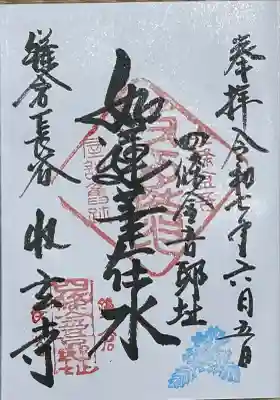 奉拝 令和七年六月五日
四條金吾邸址
如蓮華在水
鎌倉長谷 収玄寺